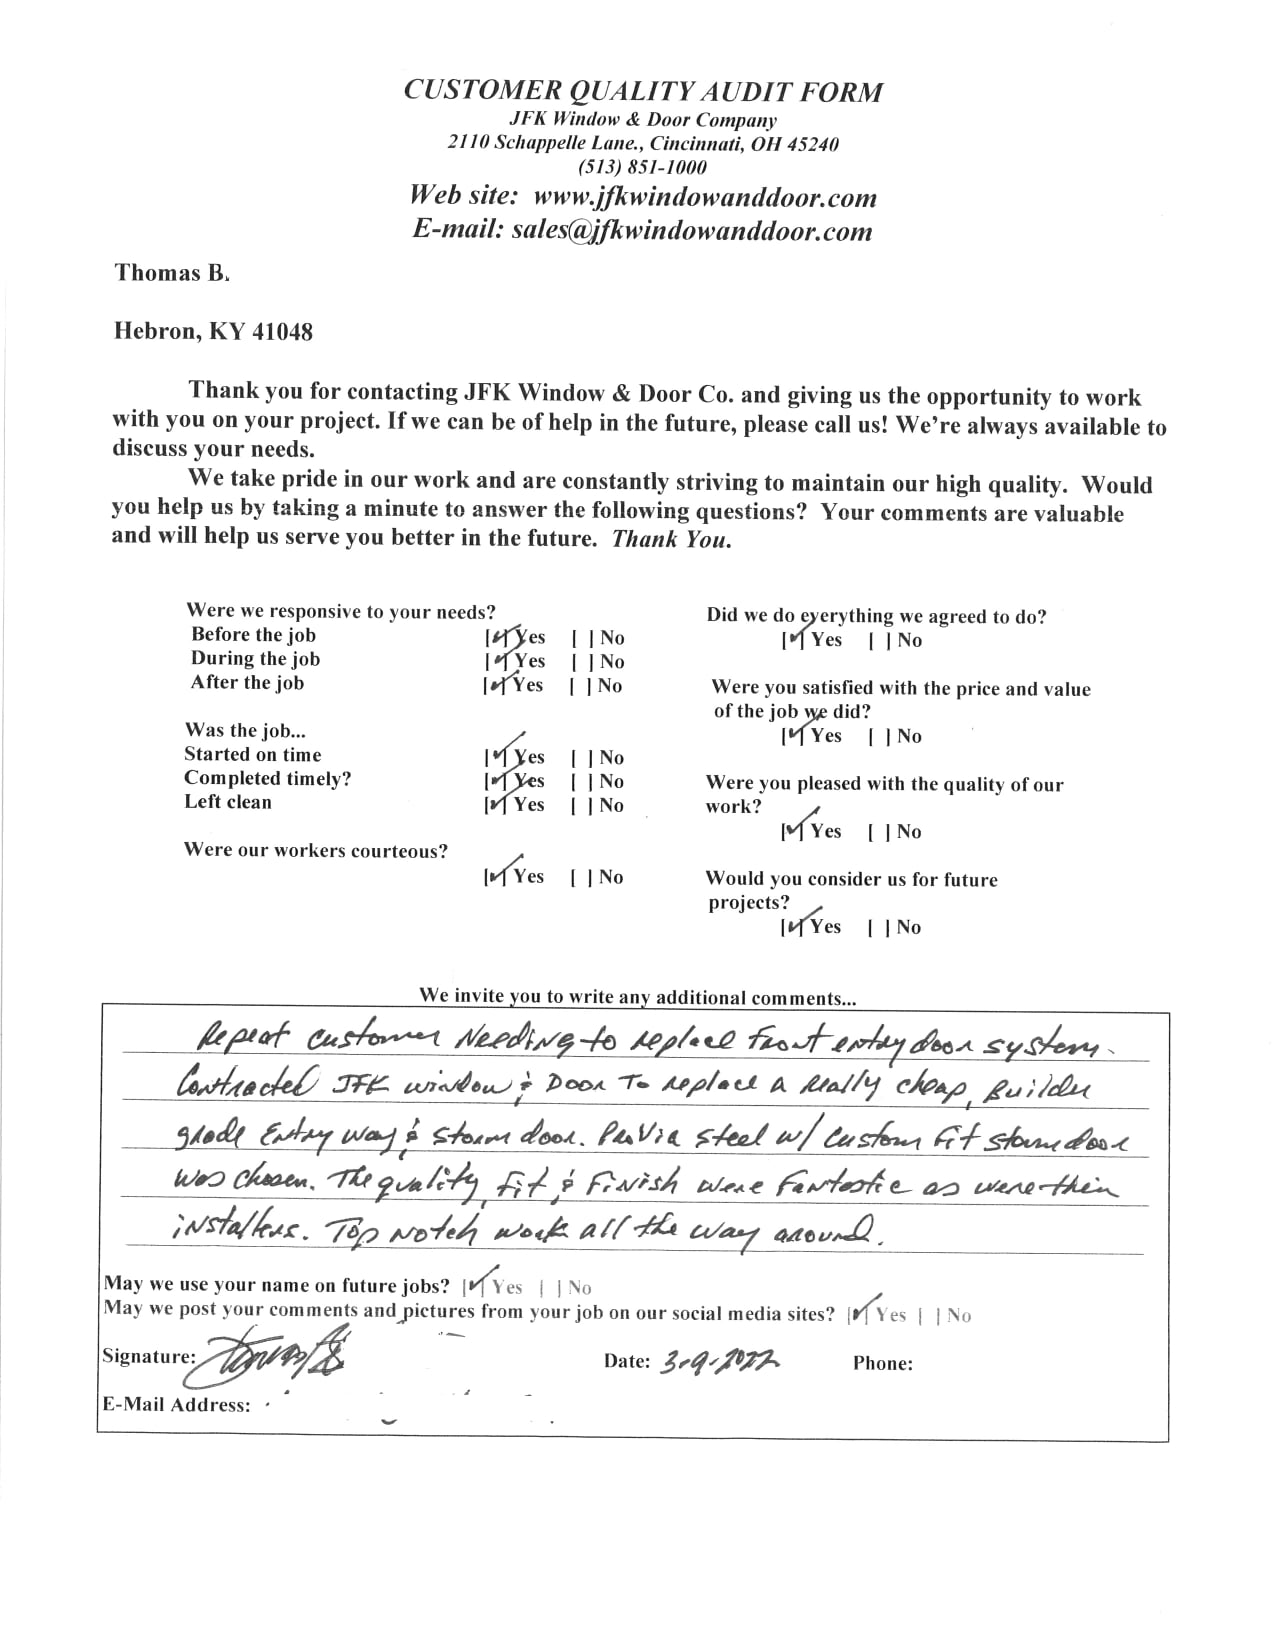 CUSTOMER QUALITY AUDIT FORM
JFK Window & Door Company
2110 Schappelle Lane., Cincinnati, OH 45240
(513) 851-1000
Web site: www.jfkwindowanddoor.com
E-mail: sales@jfkwindowanddoor.com
Thomas B.
Hebron, KY 41048
Thank you for contacting JFK Window & Door Co. and giving us the opportunity to work
with you on your project. If we can be of help in the future, please call us! We're always available to
discuss your needs.
We take pride in our work and are constantly striving to maintain our high quality. Would
you help us by taking a minute to answer the following questions? Your comments are valuable
and will help us serve you better in the future. Thank You.
Were we responsive to your needs?
Before the job [✓] Yes [ ] No
During the job [✓] Yes [ ] No
After the job [✓] Yes [ ] No
Was the job...
Started on time [✓] Yes [ ] No
Completed timely? [✓] Yes [ ] No
Left clean [✓] Yes [ ] No
Were our workers courteous?
[✓] Yes [ ] No
Did we do everything we agreed to do?
[✓] Yes [ ] No
Were you satisfied with the price and value
of the job we did?
[✓] Yes [ ] No
Were you pleased with the quality of our
work?
[✓] Yes [ ] No
Would you consider us for future
projects?
[✓] Yes [ ] No
We invite you to write any additional comments...
Repeat customer Needing to replace front entry door system.
Contracted JFK Window & Door To replace a really cheap, Builder
grade Entry way & storm door. ProVia steel w/ custom fit storm door
was chosen. The quality, fit & finish were fantastic as were their
installers. Top Notch work all the way around.
May we use your name on future jobs? [✓] Yes [ ] No
May we post your comments and pictures from your job on our social media sites? [✓] Yes [ ] No
Signature:
Date: 3-9-2022 Phone:
E-Mail Address: